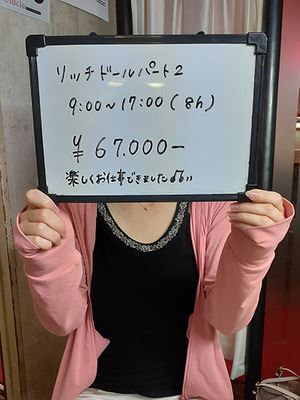 リッチドールパート2
9:00～17:00(8h)
¥67.000-
楽しくお仕事できました♪♪ゥゥ